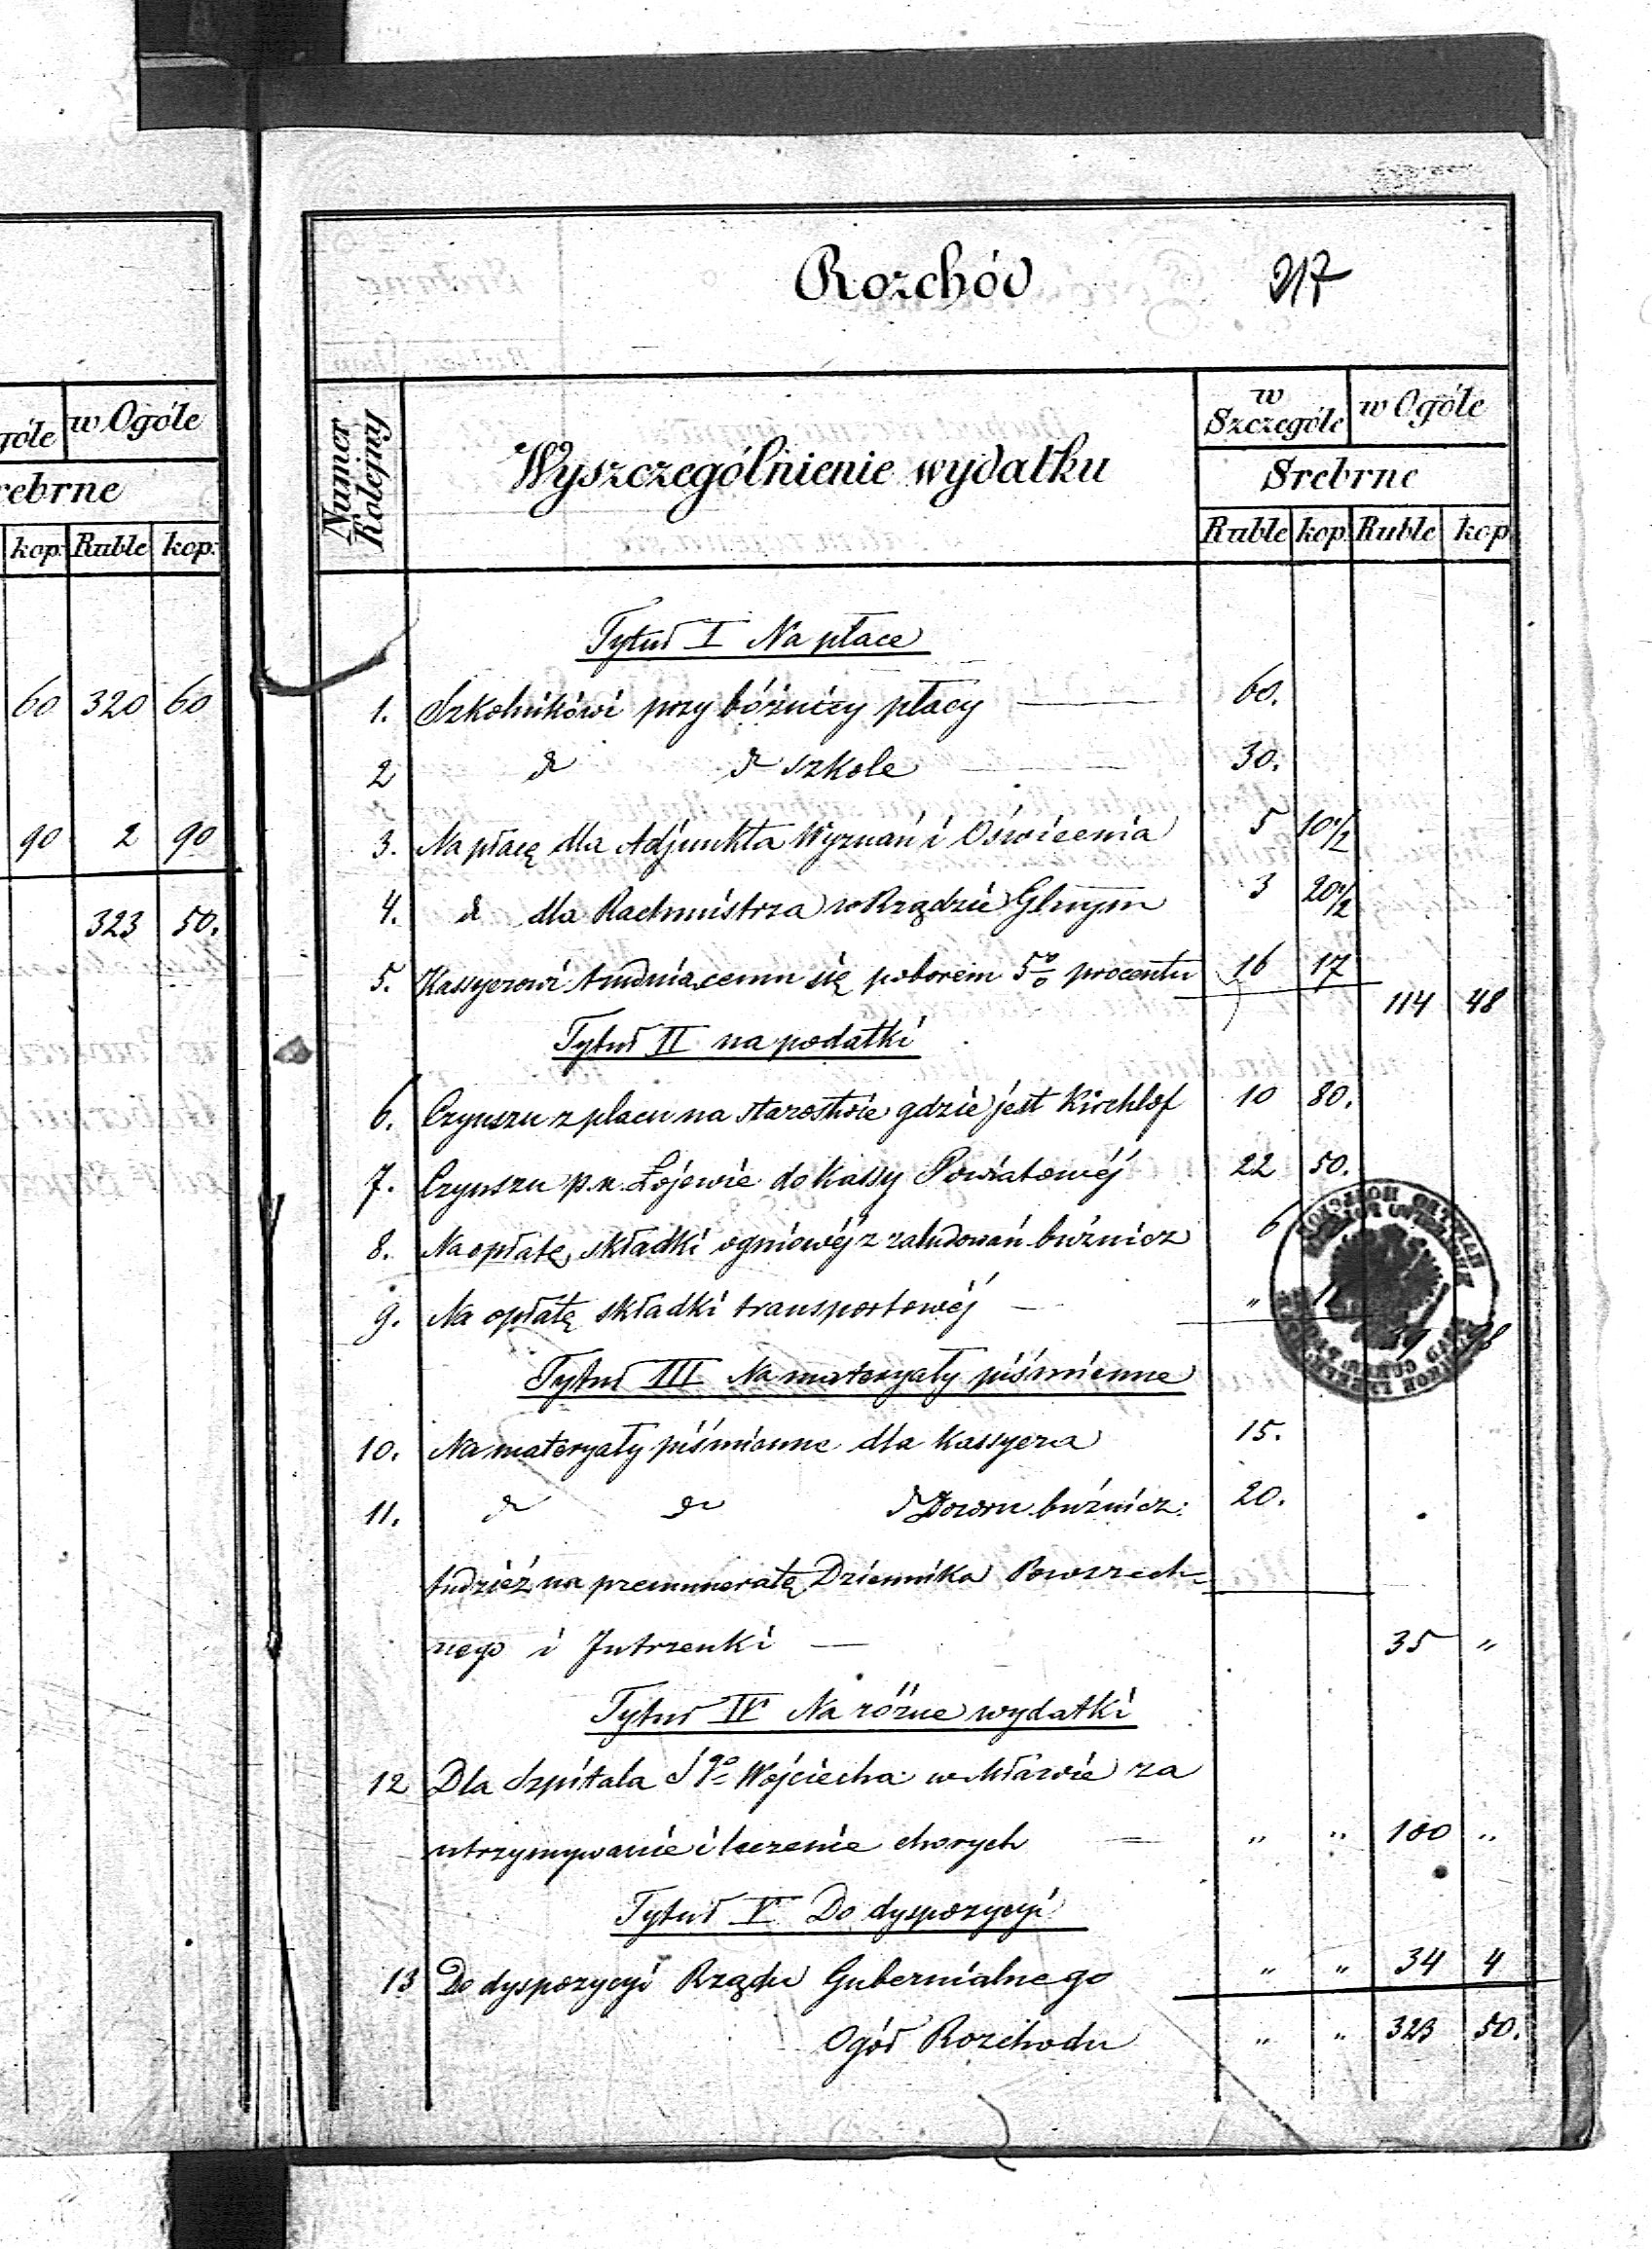 góle w Ogóle
rebrne
kop: Ruble kop:
60 320 60
90 2 90
323 50.
Rozchód 217
Numer Kolejny
Wyszczególnienie wydatku
w Szczególe w Ogóle
Srebrne
Ruble kop. Ruble kop
Tytuł I Na płace
1. Szkolnikówi przy bóźnicy płacy 60.
2 do do szkole 30.
3. Na płacę dla Adjunkta Wyznań i Oświecenia 5 10 1/2
4. do dla Rachmistrza w Rządzie Glnym 3 20 1/2
5. Kassyerowi trudniącemu się poborem 5% procentu 16 17
114 48
Tytuł II na podatki
6. Czynszu z placu na starostwie gdzie jest Kirchhof 10 80.
7. Czynszu p.n. Łojowie do Kassy Powiatowéj 22 50.
8. Na opłatę składki ogniowéj z zabudowań buźnicz 6
9. Na opłatę składki transportowéj "
Tytuł III Na materyały piśmienne
10. Na materyały piśmienne dla Kassyera 15.
11. do do do Dozoru buźnicz: 20.
tudzież na prenumeratę Dziennika Powszech-
nego i Jutrzenki 35 "
Tytuł IV Na różne wydatki
12 Dla Szpitala Sgo Wojciecha w Mławie za
utrzymywanie i leczenie chorych " " 100 "
Tytuł V Do dyspozycyi
13 Do dyspozycyi Rządu Gubernialnego " " 34 4
Ogół Rozchodu " " 323 50.